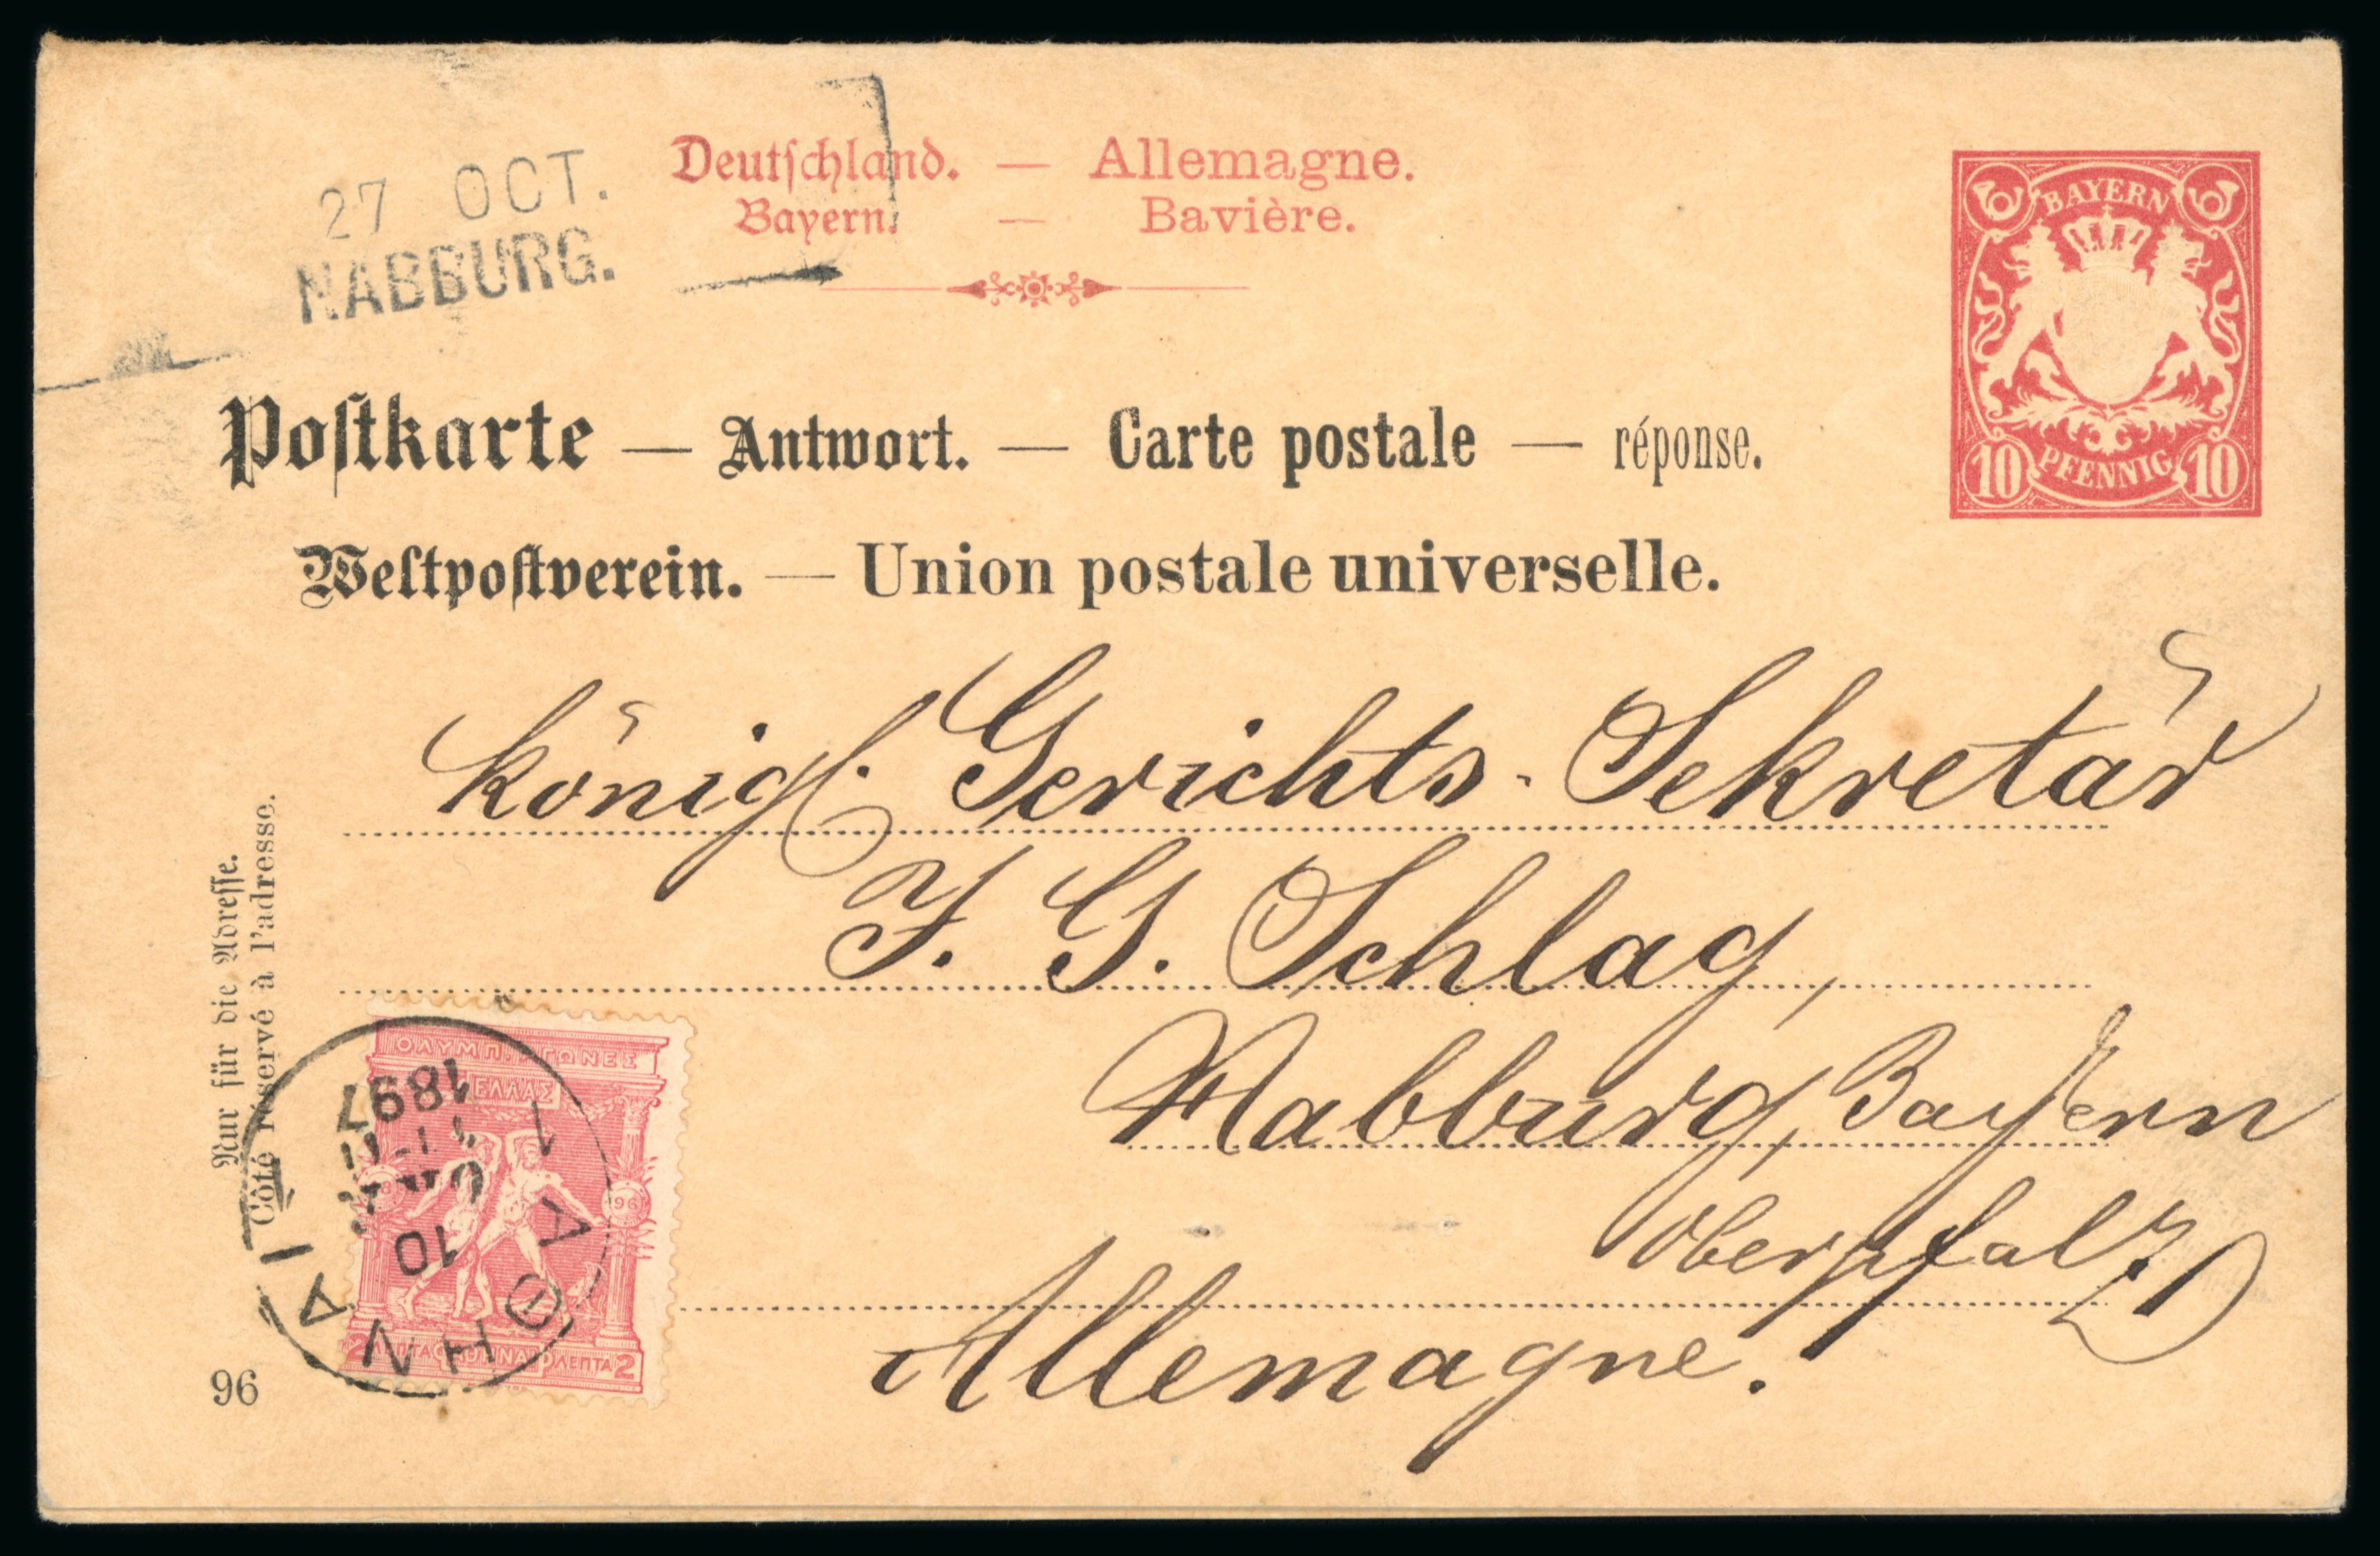 27 OCT.
NABBURG.
Deutschland. — Allemagne.
Bayern. — Bavière.
BAYERN
10 PFENNIG 10
Postkarte — Antwort. — Carte postale — réponse.
Weltpostverein. — Union postale universelle.
Königl. Gerichts-Sekretär
J. G. Schlag,
Nabburg, Bayern
Oberpfalz
Allemagne.
Nur für die Adresse.
Côté réservé à l'adresse.
ΟΛΥΜΠ. ΑΓΩΝΕΣ
ΕΛΛΑΣ
96
2 ΛΕΠΤΑ ΛΕΠΤΑ 2
ΑΘΗΝΑΙ 1
10
1897
96